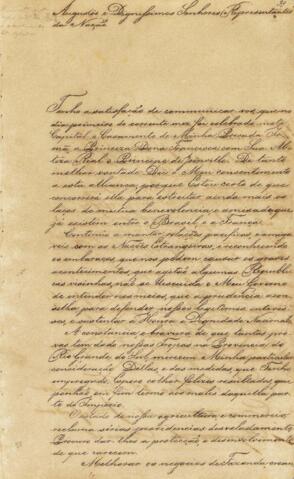 Augustos e Dignissimos Senhores Representantes
da Nação
Tenho a satisfação de communicar vos que no
dia primeiro do corrente mez foi celebrado nesta
Capital o Casamento de Minha Prezada Ir-
mã a Princeza Dona Francisca com Sua Al-
teza Real o Principe de Joinville. De tanto
melhor vontade Dei o Meu consentimento
a esta alliança, porque Estou certo de que
concorrerá ella para estreitar ainda mais os
laços de mutua benevolencia, e amizade que
já existem entre o Brasil e a França.
Continúo a manter relações pacificas e amiga-
veis com as Nações Estrangeiras, e reconhecendo
os embaraços que nos podem causar os graves
acontecimentos, que agitão algumas Republi-
cas visinhas, não se descuida o Meu Governo
de entender nos meios, que a prudencia acon-
selha para defender nossos legitimos interes-
ses, e sustentar a Honra e Dignidade Nacional.
A constancia, e bravura de que tantas pro-
vas tem dado nossas Tropas na Provincia do
Rio Grande do Sul merecem a Minha particular
consideração. Dellas, e das medidas, que Tenho
empregado, Espero colher felizes resultados que
ponhão em fim termo aos males daquella par-
te do Imperio.
O estado de nossa agricultura, e commercio,
reclama sérias providencias desveladamente
Procuro dar-lhes a protecção, e desenvolvimento
de que carecem.
Melhorar os negocios da Fazenda, crean